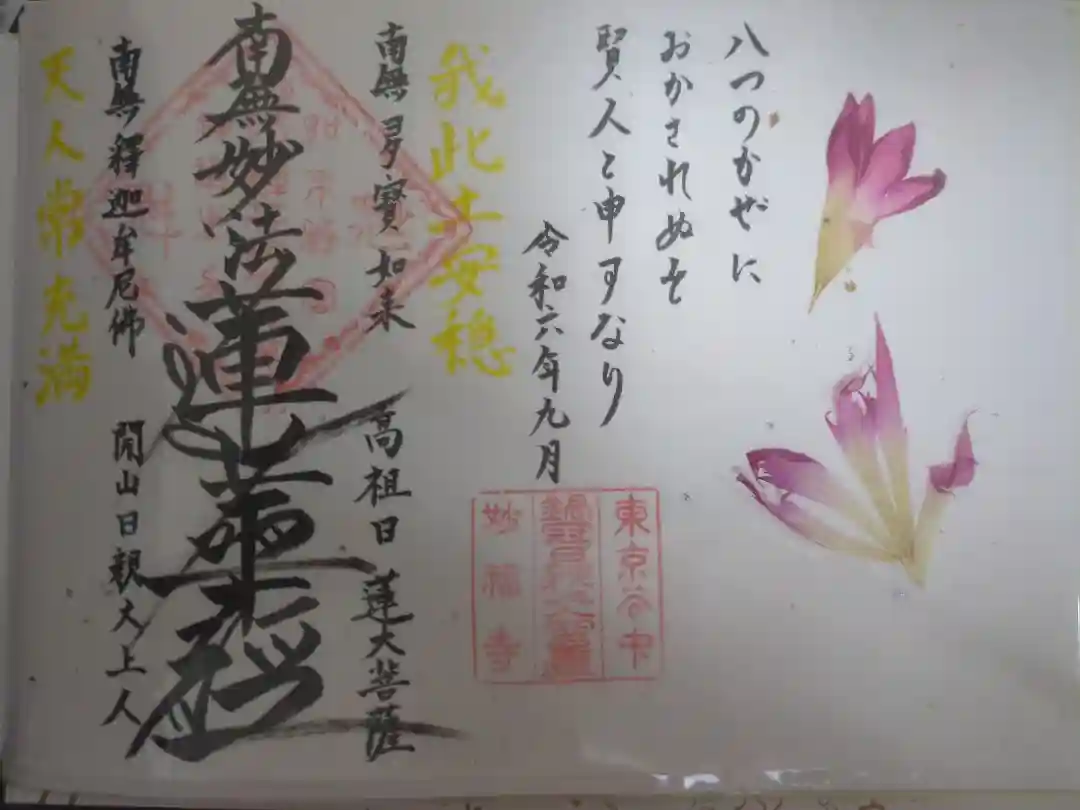 八つのかぜに
おかされぬを
賢人と申すなり
令和六年九月
東京谷中
妙福寺
我此土安穏
南無多寶如来
高祖日蓮大菩薩
南無妙法蓮華経
南無釋迦牟尼佛
開山日親大上人
天人常充満